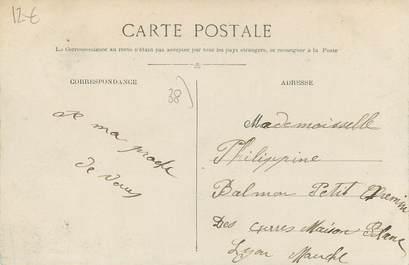 12-€
CARTE POSTALE
La Correspondance au recto n'était pas acceptée par tous les pays étrangers, se renseigner à la Poste
CORRESPONDANCE
ADRESSE
38)
ma
de vous
Mademoiselle
Philippine
Balmon Petit Chemin
Des Maison Blanc
Lyon